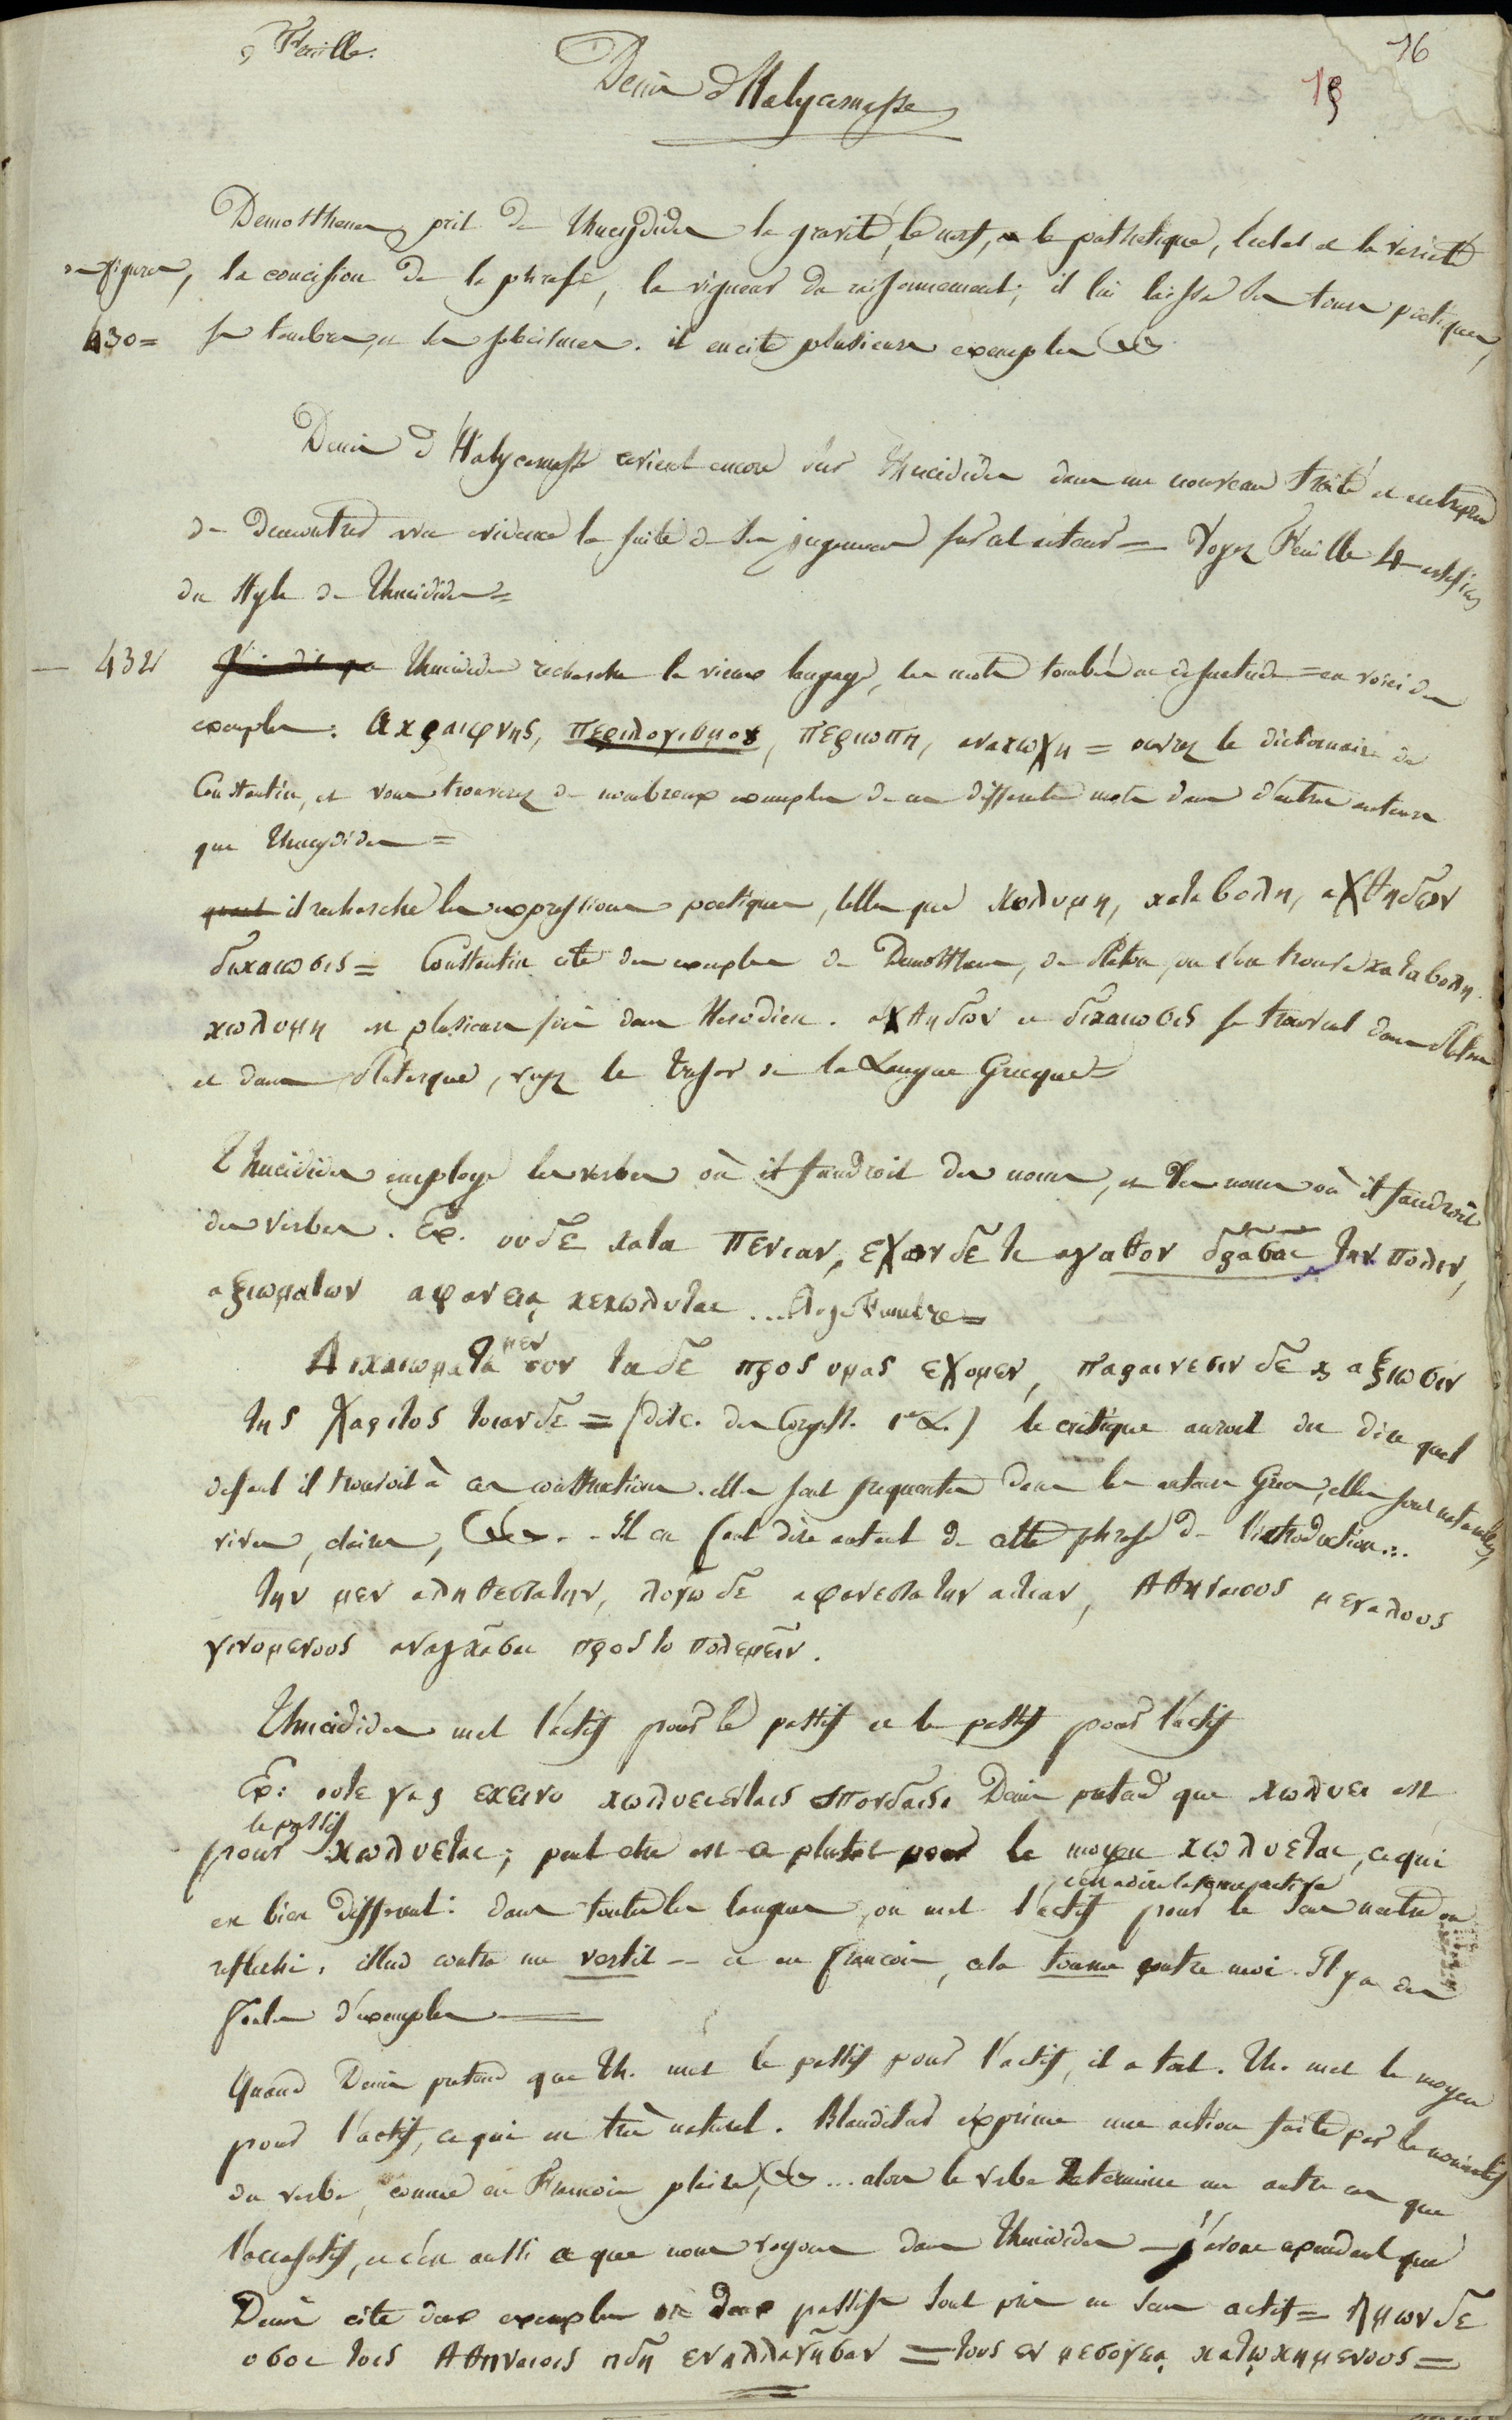 9 Feuille.
16
Denis d'Halycarnasse
Demosthenes prit de Thucydides la gravité, le nerf, le pathetique, l'eclat et la varieté
des figures, la concision de la phrase, la vigueur du raisonnement; il lui laissa ses tours poetiques,
430= ses tenebres et ses solecismes. il en cite plusieurs exemples &&
Denis d'Halycarnasse revient encore sur Thucidides dans un nouveau traité et entreprend
de demontrer avec evidence la suite de son jugement sur cet auteur = Voyez Feuille 4
du Style de Thucidides =
— 432 Thucidides recherche le vieux langage, les mots tombés en desuetude = en voici des
exemples: αχραιφνης, περιλογισμος, περιωπη, αναχωχη = ouvrez le dictionnaire de
Constantin, et vous trouverez de nombreux exemples de ces differents mots dans d'autres auteurs
que Thucydides =
il recherche les expressions poetiques, telles que κωλυμη, καταβολη, αχθηδων
δικαιωσις = Constantin cite des exemples de Demosthene, de Platon, ou l'on trouve καταβολη.
κωλυμη est plusieurs fois dans Herodien. αχθηδων et δικαιωσις se trouvent dans Platon
et dans Plutarque, voyez le tresor de la Langue Grecque =
Thucidides employe les verbes où il faudroit des noms, et des noms où il faudroit
des verbes. Ex. ουδε κατα πενιαν, εχων δε τι αγαθον δρασαι την πολιν,
αξιωματων αφανεια κεκωλυται ... Eloge Funebre =
Δικαιωματα μεν ουν ταδε προς υμας εχομεν, παραινεσιν δε κ αξιωσιν
της χαριτος τοιανδε = (disc. des Corynth. 1er L.) le critique auroit du dire quel
defaut il trouvoit à ces constructions. elles sont frequentes dans les auteurs Grecs, elles sont naturelles,
vives, claires, &&. - Il en faut dire autant de cette phrase de l'introduction...
την μεν αληθεστατην, λογω δε αφανεστατην αιτιαν, Αθηναιους μεγαλους
γινομενους αναγκασαι προς το πολεμειν.
Thucidides met l'actif pour le passif et le passif pour l'actif
Ex: ουτε γαρ εκεινο κωλυει εν ταις σπονδαις. Denis pretend que κωλυει est
pour le passif κωλυεται; peut etre est ce plutot pour le moyen κωλυεται, ce qui
est bien different: dans toutes les langues, on met l'actif c'est a dire la forme active pour le sens neutre ou
reflechi. illud contra me vertit — et en francois, cela tourne contre moi. Il y a des
foules d'exemples —
Quand Denis pretend que Th. met le passif pour l'actif, il a tort. Th. met le moyen
pour l'actif, ce qui est très naturel. Blanditur exprime une action faite par le nominatif
du verbe, comme en Francois plaire, && ... alors le verbe determine un autre cas que
l'accusatif, et c'est aussi ce que nous voyons dans Thucidides — j'avoue cependant que
Denis cite deux exemples où deux passifs sont pris en sens actif = ημων δε
οσοι τοις Αθηναιοις ηδη ενηλλαγησαν = τους εν μεσογεια κατωκημενους =